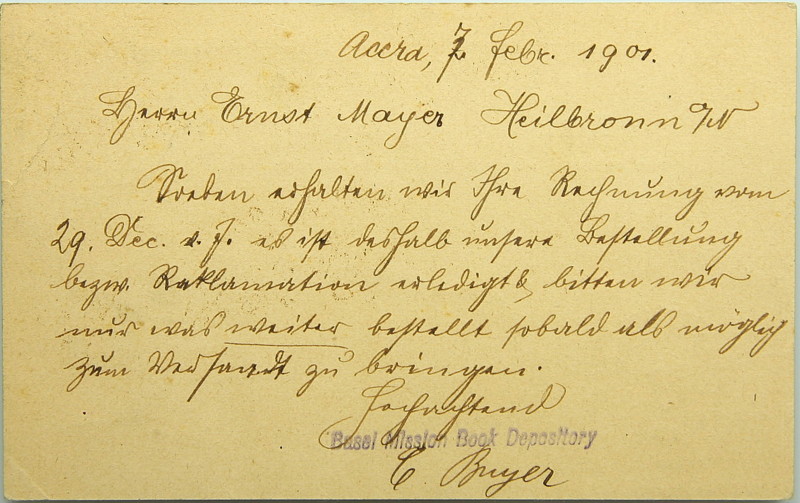 Accra, 7. Febr. 1901.
Herrn Ernst Mayer Heilbronn a/N
Soeben erhalten wir Ihre Rechnung vom
29. Dec. v. J. es ist deshalb unsere Bestellung
bezw. Reklamation erledigt & bitten wir
nur was weiter bestellt sobald als möglich
zum Versandt zu bringen.
Hochachtend
Basel Mission Book Depository
C. Buyer